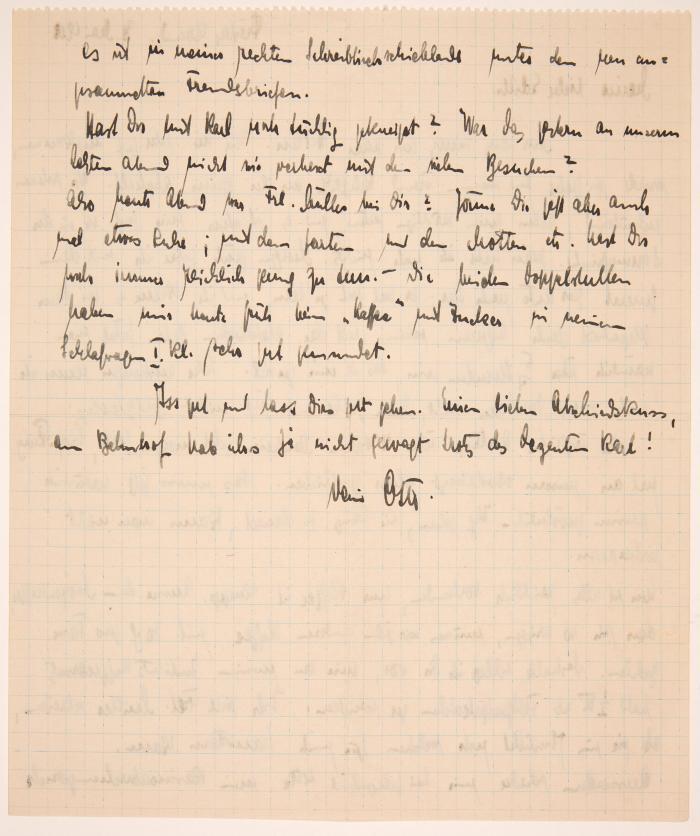 es ist in meiner rechten Schreibtischschieblade unter den neu an=
gesammelten Fremdsbriefen.
Hast Du mit Karl noch tüchtig gekneipt? War das gestern an unserem
letzten Abend nicht wie verhext mit den vielen Besuchen?
Also heute Abend war Frl. Müller bei Dir? Gönne Dir jetzt aber auch
mal etwas Ruhe; mit dem Garten und den Motten etc. hast Du
noch immer reichlich genug zu tun. – Die beiden Doppelstullen
haben mir heute früh beim „Kaffee" mit Zucker in meinem
Schlafwagen I. Kl. sehr gut gemundet.
Iss gut und lass Dirs gut gehen. Einen lieben Abschiedskuss,
am Bahnhof hab ichs ja nicht gewagt trotz des dezenten Karl!
Dein Otto.